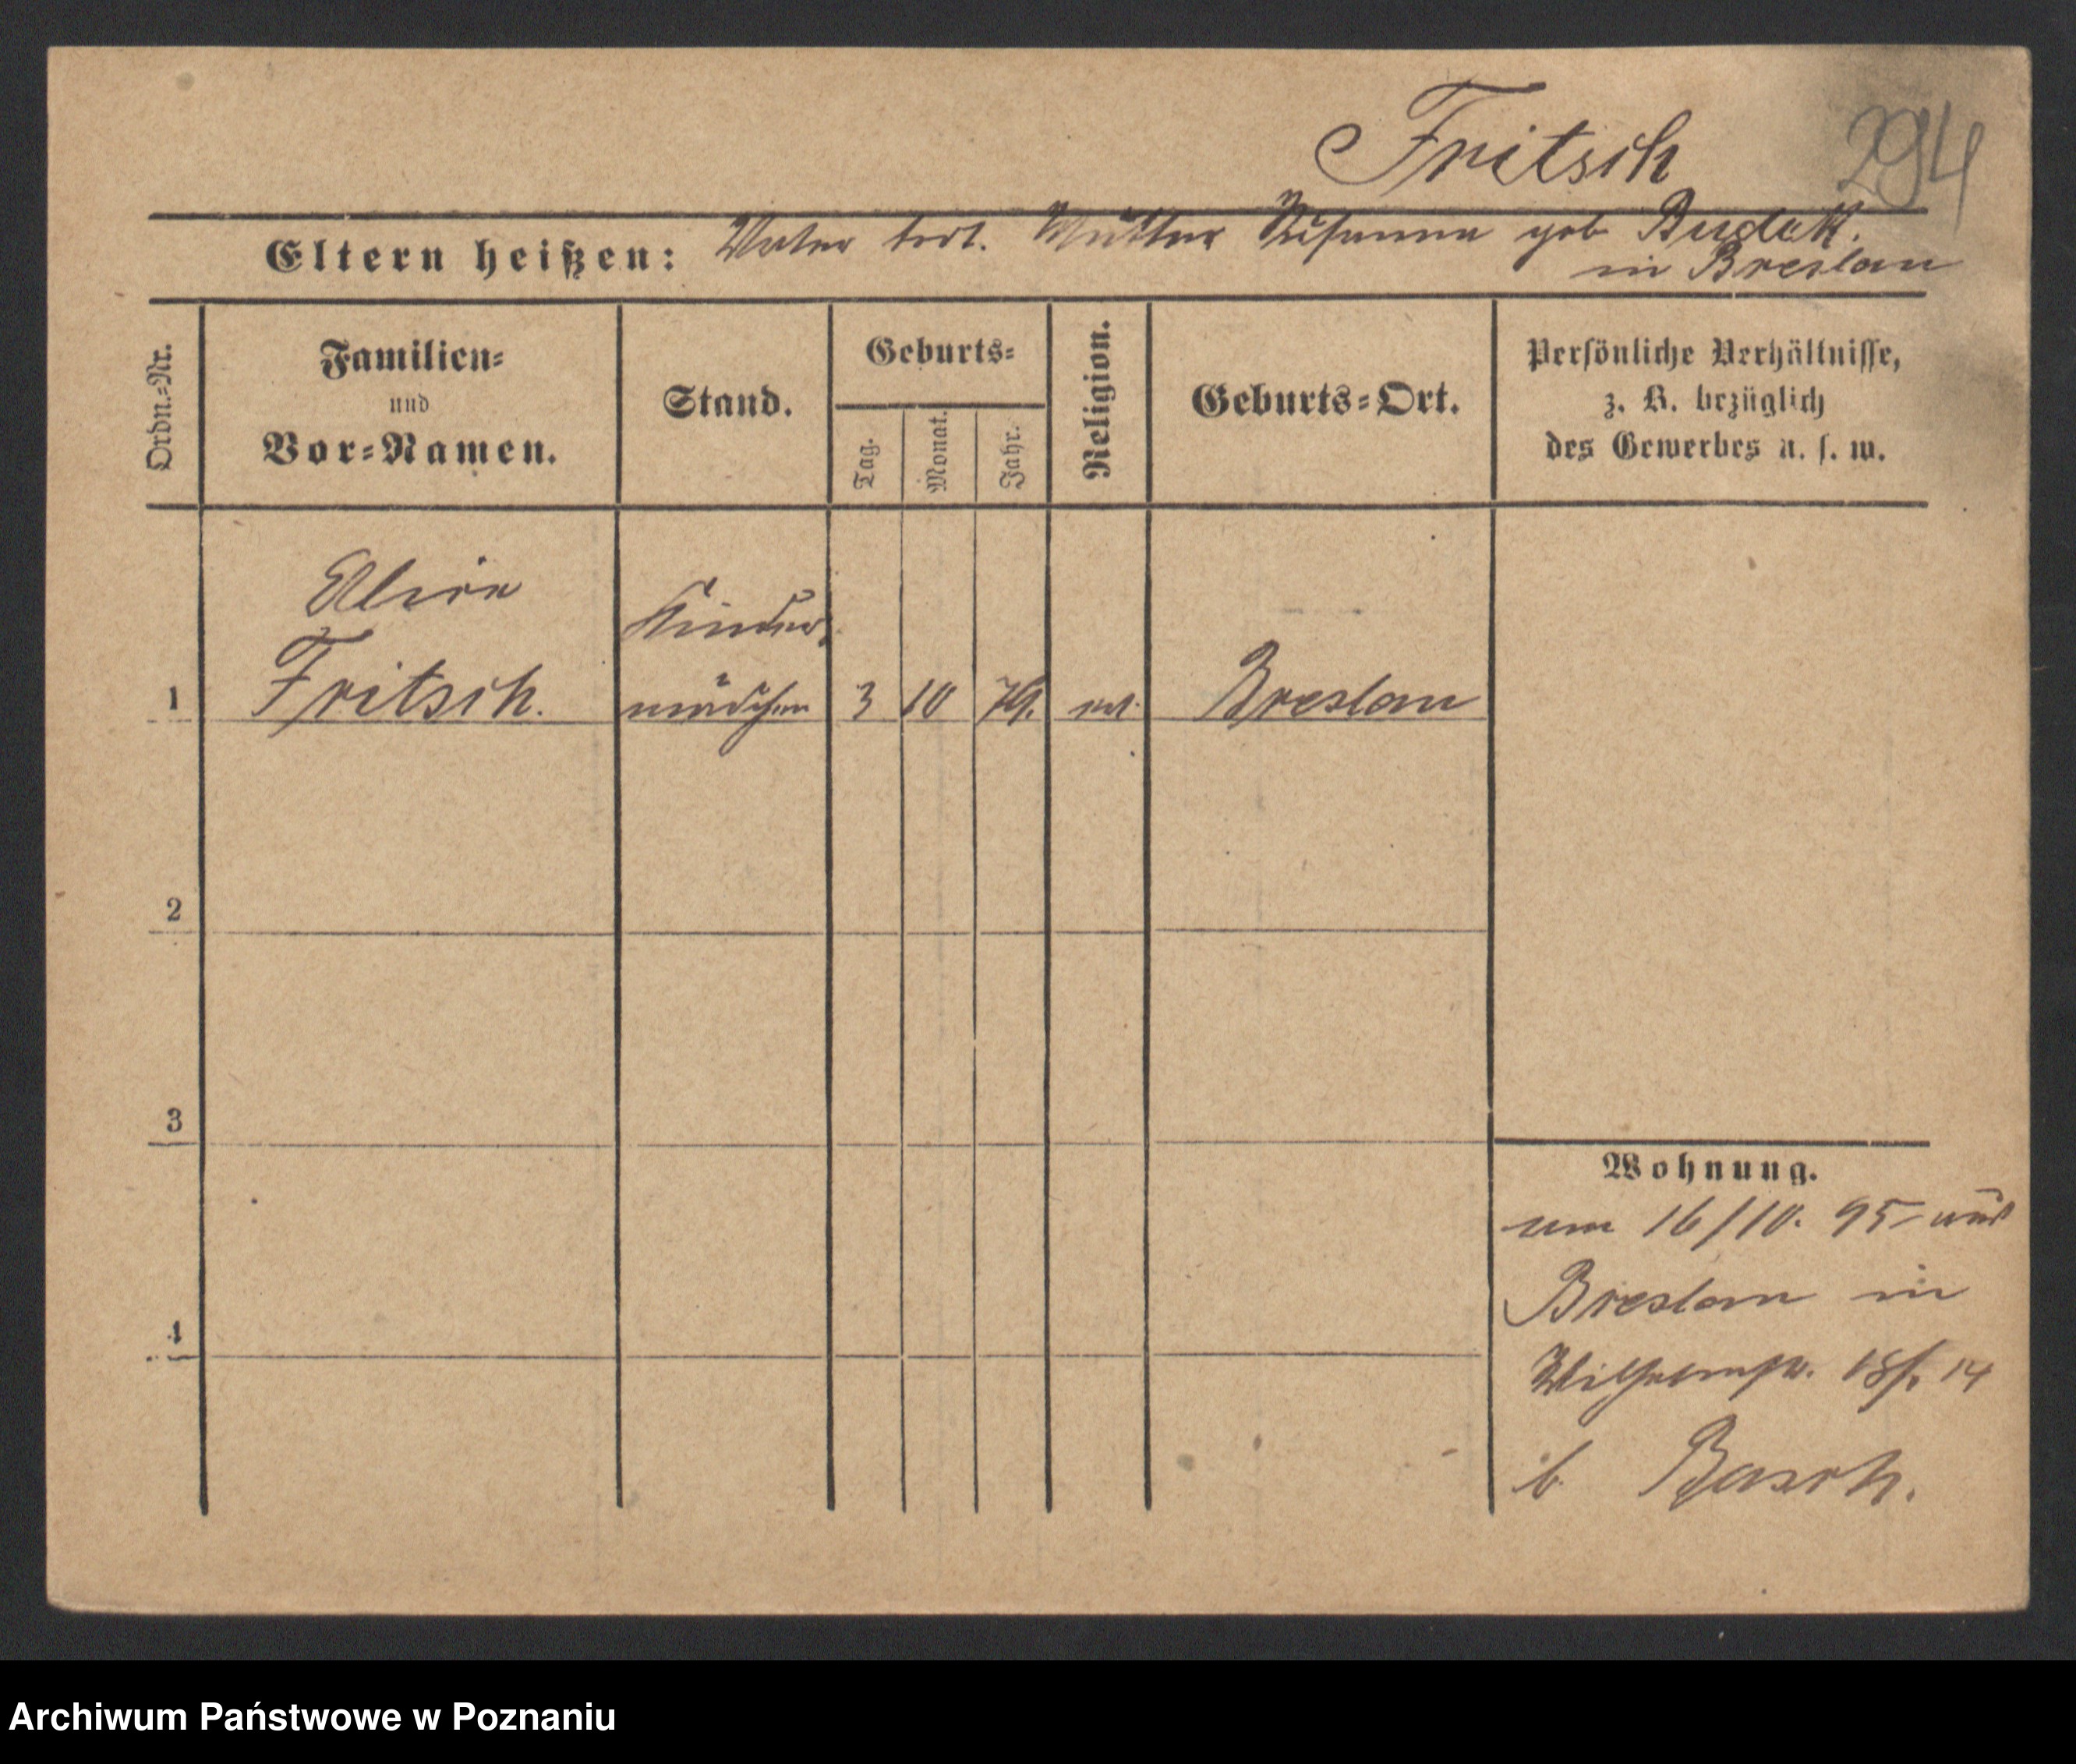 Fritsch
294
Eltern heißen: Vater tot. Mutter Susanna geb Budek.
in Breslau
Ordn.=Nr.
Familien=
und
Vor=Namen.
Stand.
Geburts=
Tag.
Monat.
Jahr.
Religion.
Geburts=Ort.
Persönliche Verhältnisse,
z. B. bezüglich
des Gewerbes u. s. w.
Fritsch.
Kinder
1 mädchen 3 10 79. Breslau
2
3
4
Wohnung.
am 16/10. 95 aus
Breslau in
14
b. Basch.
Archiwum Państwowe w Poznaniu